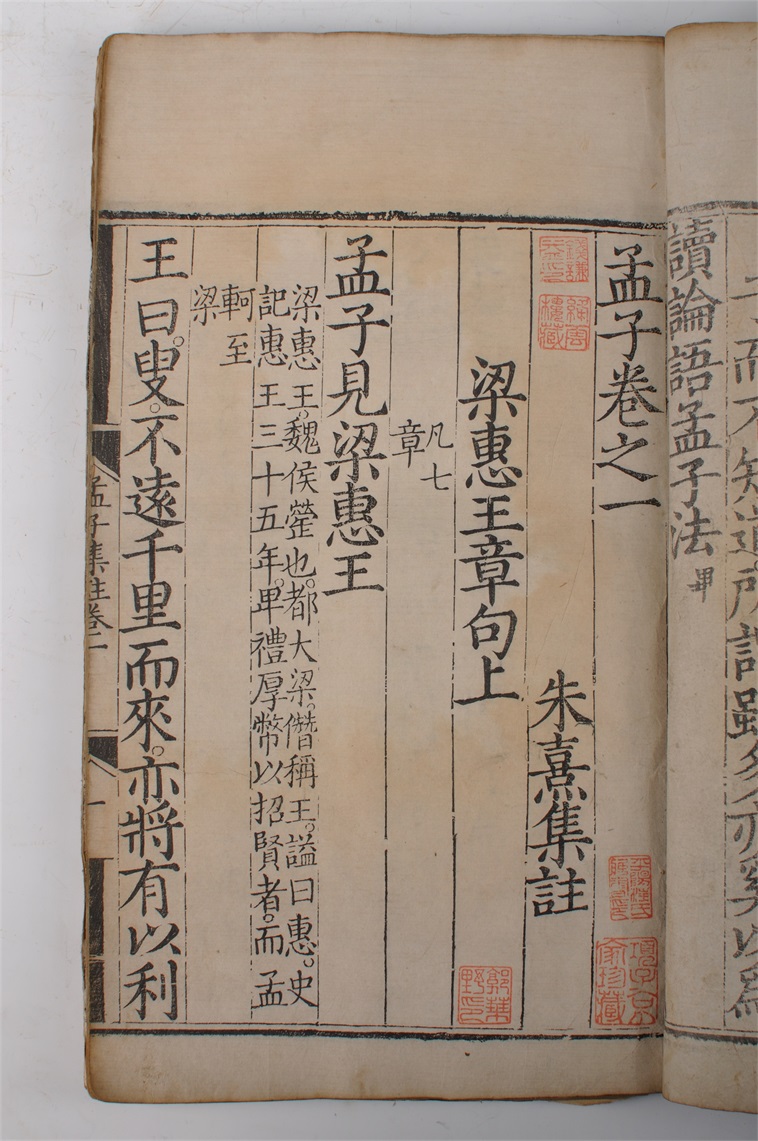 知道所謂雖多亦奚以爲
讀論語孟子法畢
孟子卷之一
朱熹集註
梁惠王章句上
凡七
章
孟子見梁惠王
梁惠王。魏侯罃也。都大梁。僭稱王。謚曰惠。史
記惠王三十五年。卑禮厚幣以招賢者。而孟
軻至
梁
王曰。叟。不遠千里而來。亦將有以利
孟子集註卷一
一
絳雲
樓藏
項子京
家珍藏